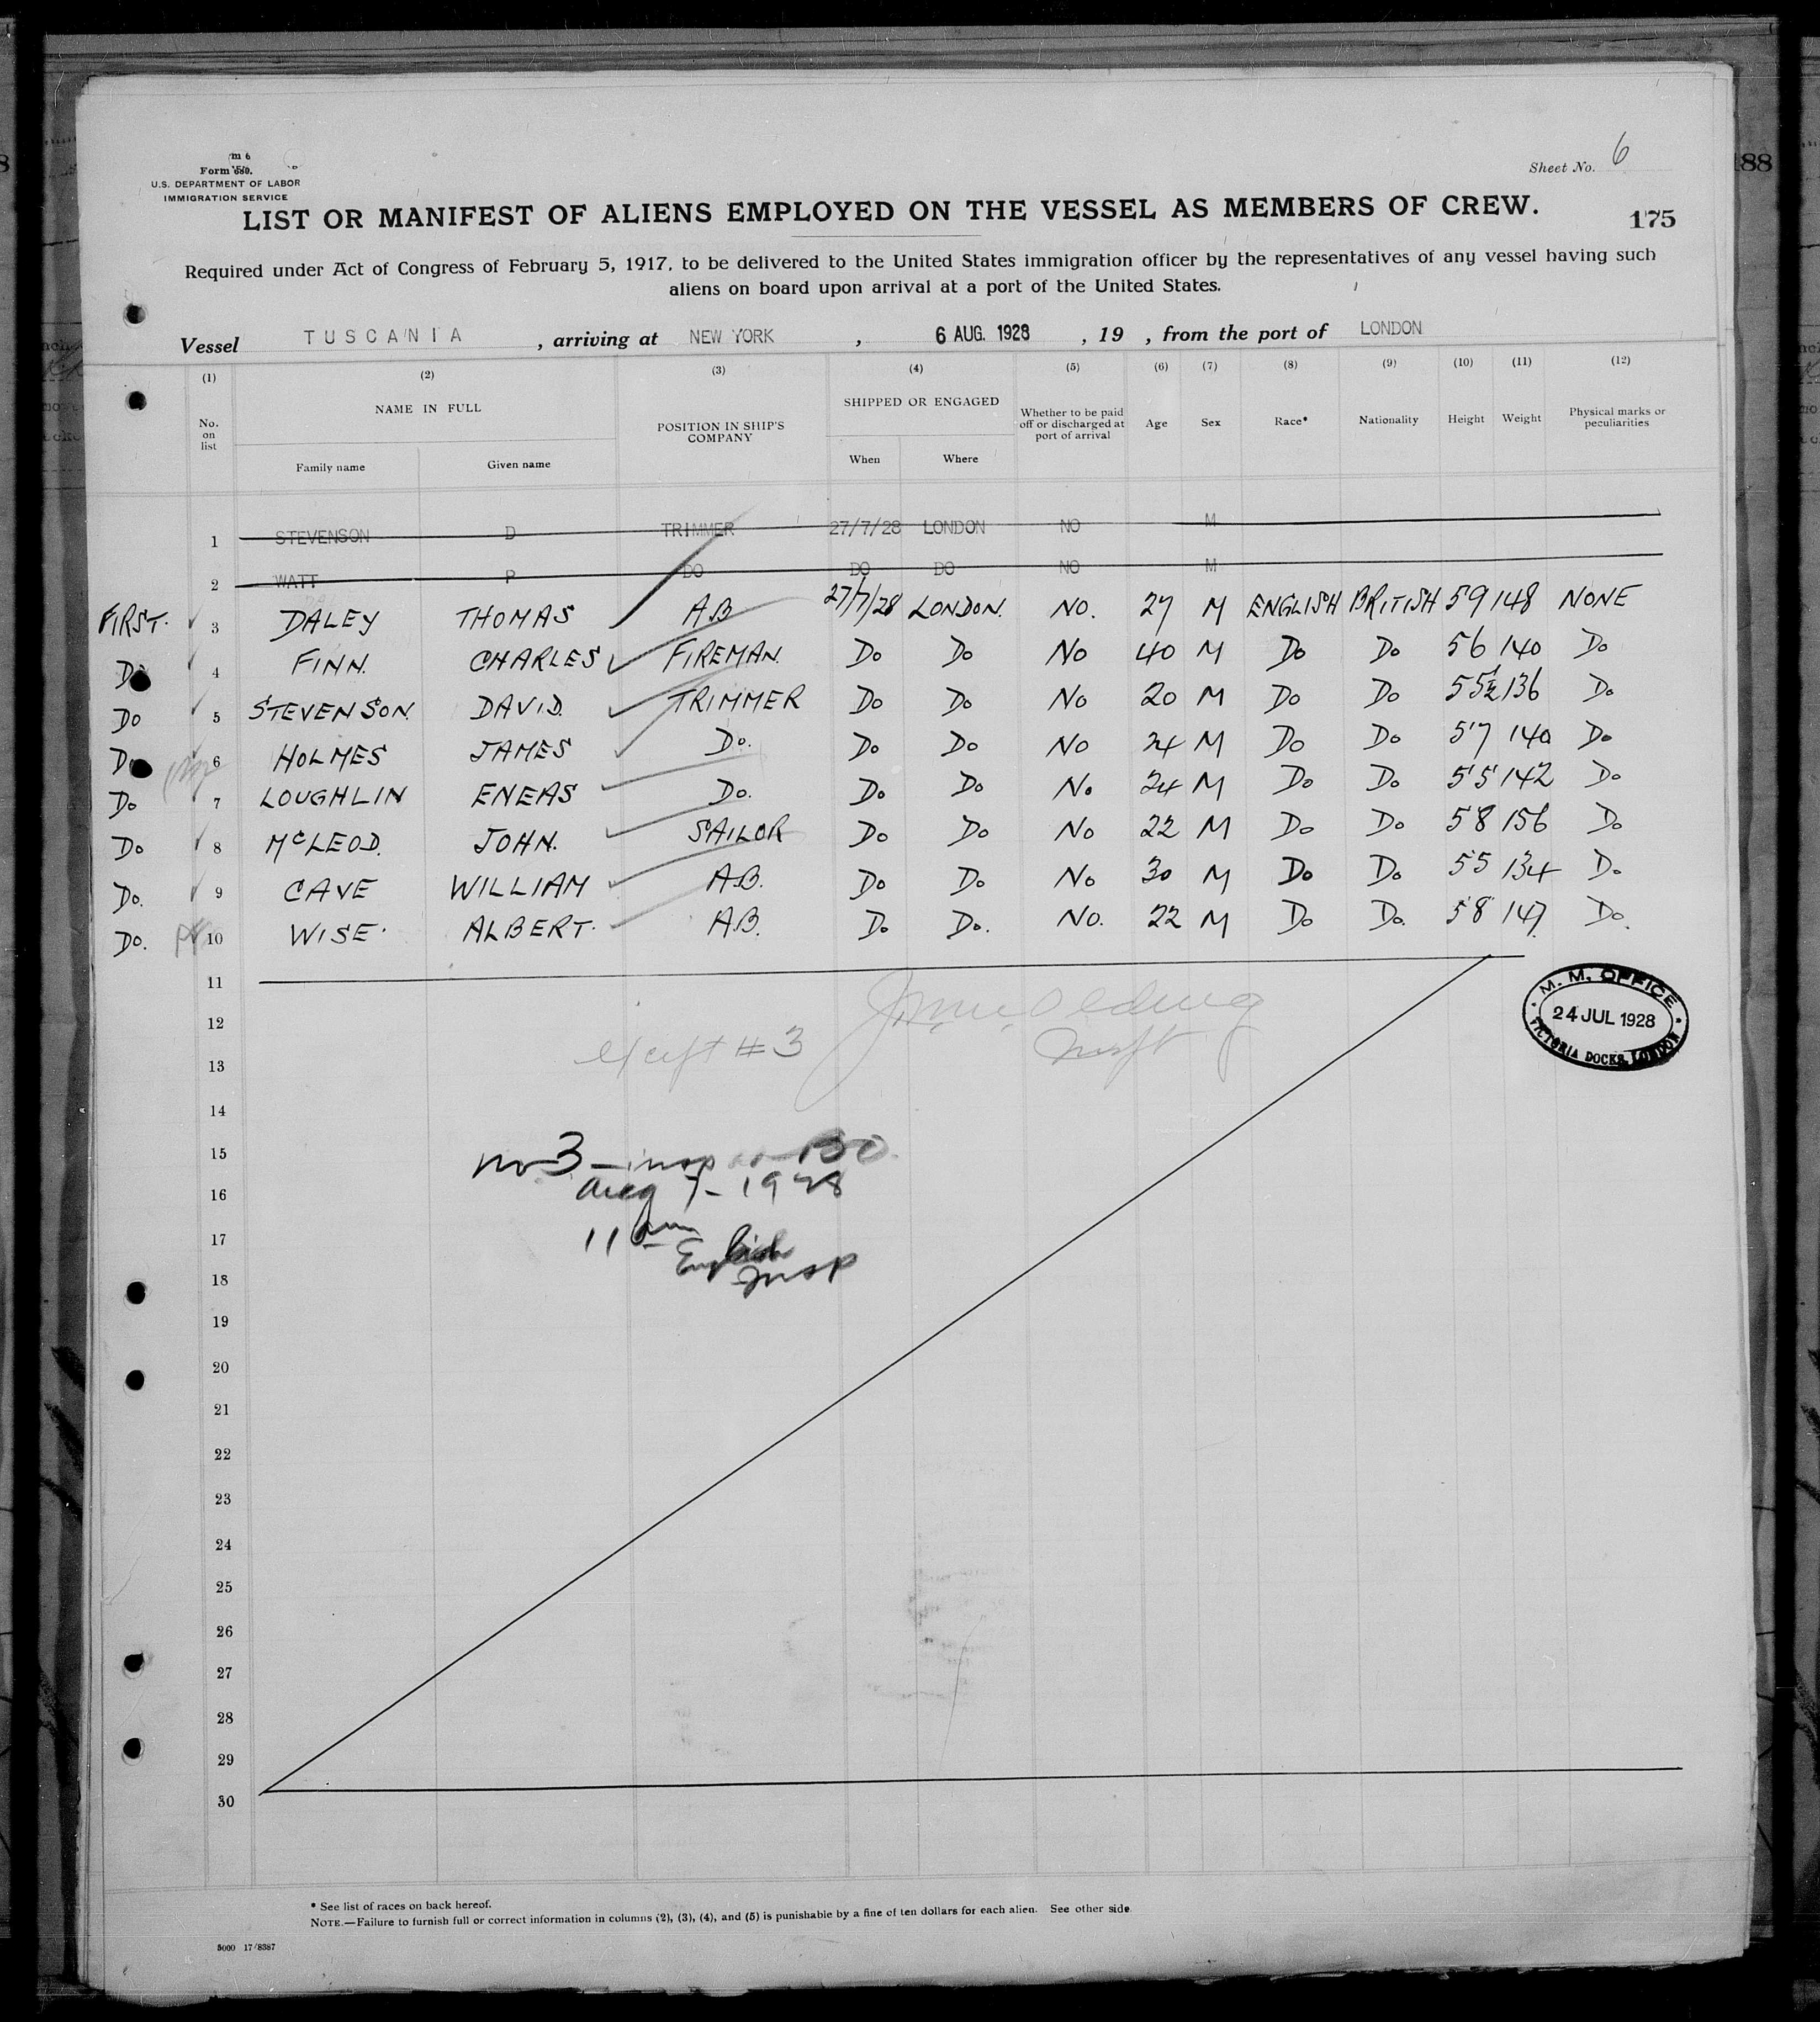 Sheet No. 6
Form 680.
U.S. DEPARTMENT OF LABOR
IMMIGRATION SERVICE
LIST OR MANIFEST OF ALIENS EMPLOYED ON THE VESSEL AS MEMBERS OF CREW.
175
Required under Act of Congress of February 5, 1917, to be delivered to the United States immigration officer by the representatives of any vessel having such
aliens on board upon arrival at a port of the United States.
Vessel TUSCANIA , arriving at NEW YORK , 6 AUG. 1928 , 19 , from the port of LONDON
(1) (2) (3) (4) (5) (6) (7) (8) (9) (10) (11) (12)
No. on list NAME IN FULL Family name Given name POSITION IN SHIP'S COMPANY SHIPPED OR ENGAGED When Where Whether to be paid off or discharged at port of arrival Age Sex Race* Nationality Height Weight Physical marks or peculiarities
1 STEVENSON D TRIMMER 27/7/28 LONDON NO M
2 WATT P DO DO DO NO M
FIRST. 3 DALEY THOMAS A.B 27/7/28 LONDON. NO. 27 M ENGLISH BRITISH 5'9 148 NONE
Do 4 FINN. CHARLES FIREMAN. Do Do No 40 M Do Do 5'6 140 Do
Do 5 STEVENSON. DAVID. TRIMMER Do Do No 20 M Do Do 5'5½ 136 Do
Do 6 HOLMES JAMES Do. Do Do No 24 M Do Do 5'7 140 Do
Do 7 LOUGHLIN ENEAS Do. Do Do No 24 M Do Do 5'5 142 Do
Do 8 McLEOD. JOHN. SAILOR Do Do No 22 M Do Do 5'8 156 Do
Do. 9 CAVE WILLIAM A.B. Do Do No 30 M Do Do 5'5 134 Do
Do. 10 WISE. ALBERT. A.B. Do Do. No. 22 M Do Do. 5'8 147 Do.
11
12
13
14
15
16
17
18
19
20
21
22
23
24
25
26
27
28
29
30
M. M. OFFICE
24 JUL 1928
VICTORIA DOCKS, LONDON
#3
Insp
no 3 - insp
Aug 7 - 1928
11 am
English
Insp
* See list of races on back hereof.
NOTE.—Failure to furnish full or correct information in columns (2), (3), (4), and (5) is punishable by a fine of ten dollars for each alien. See other side.
5000 17/8387